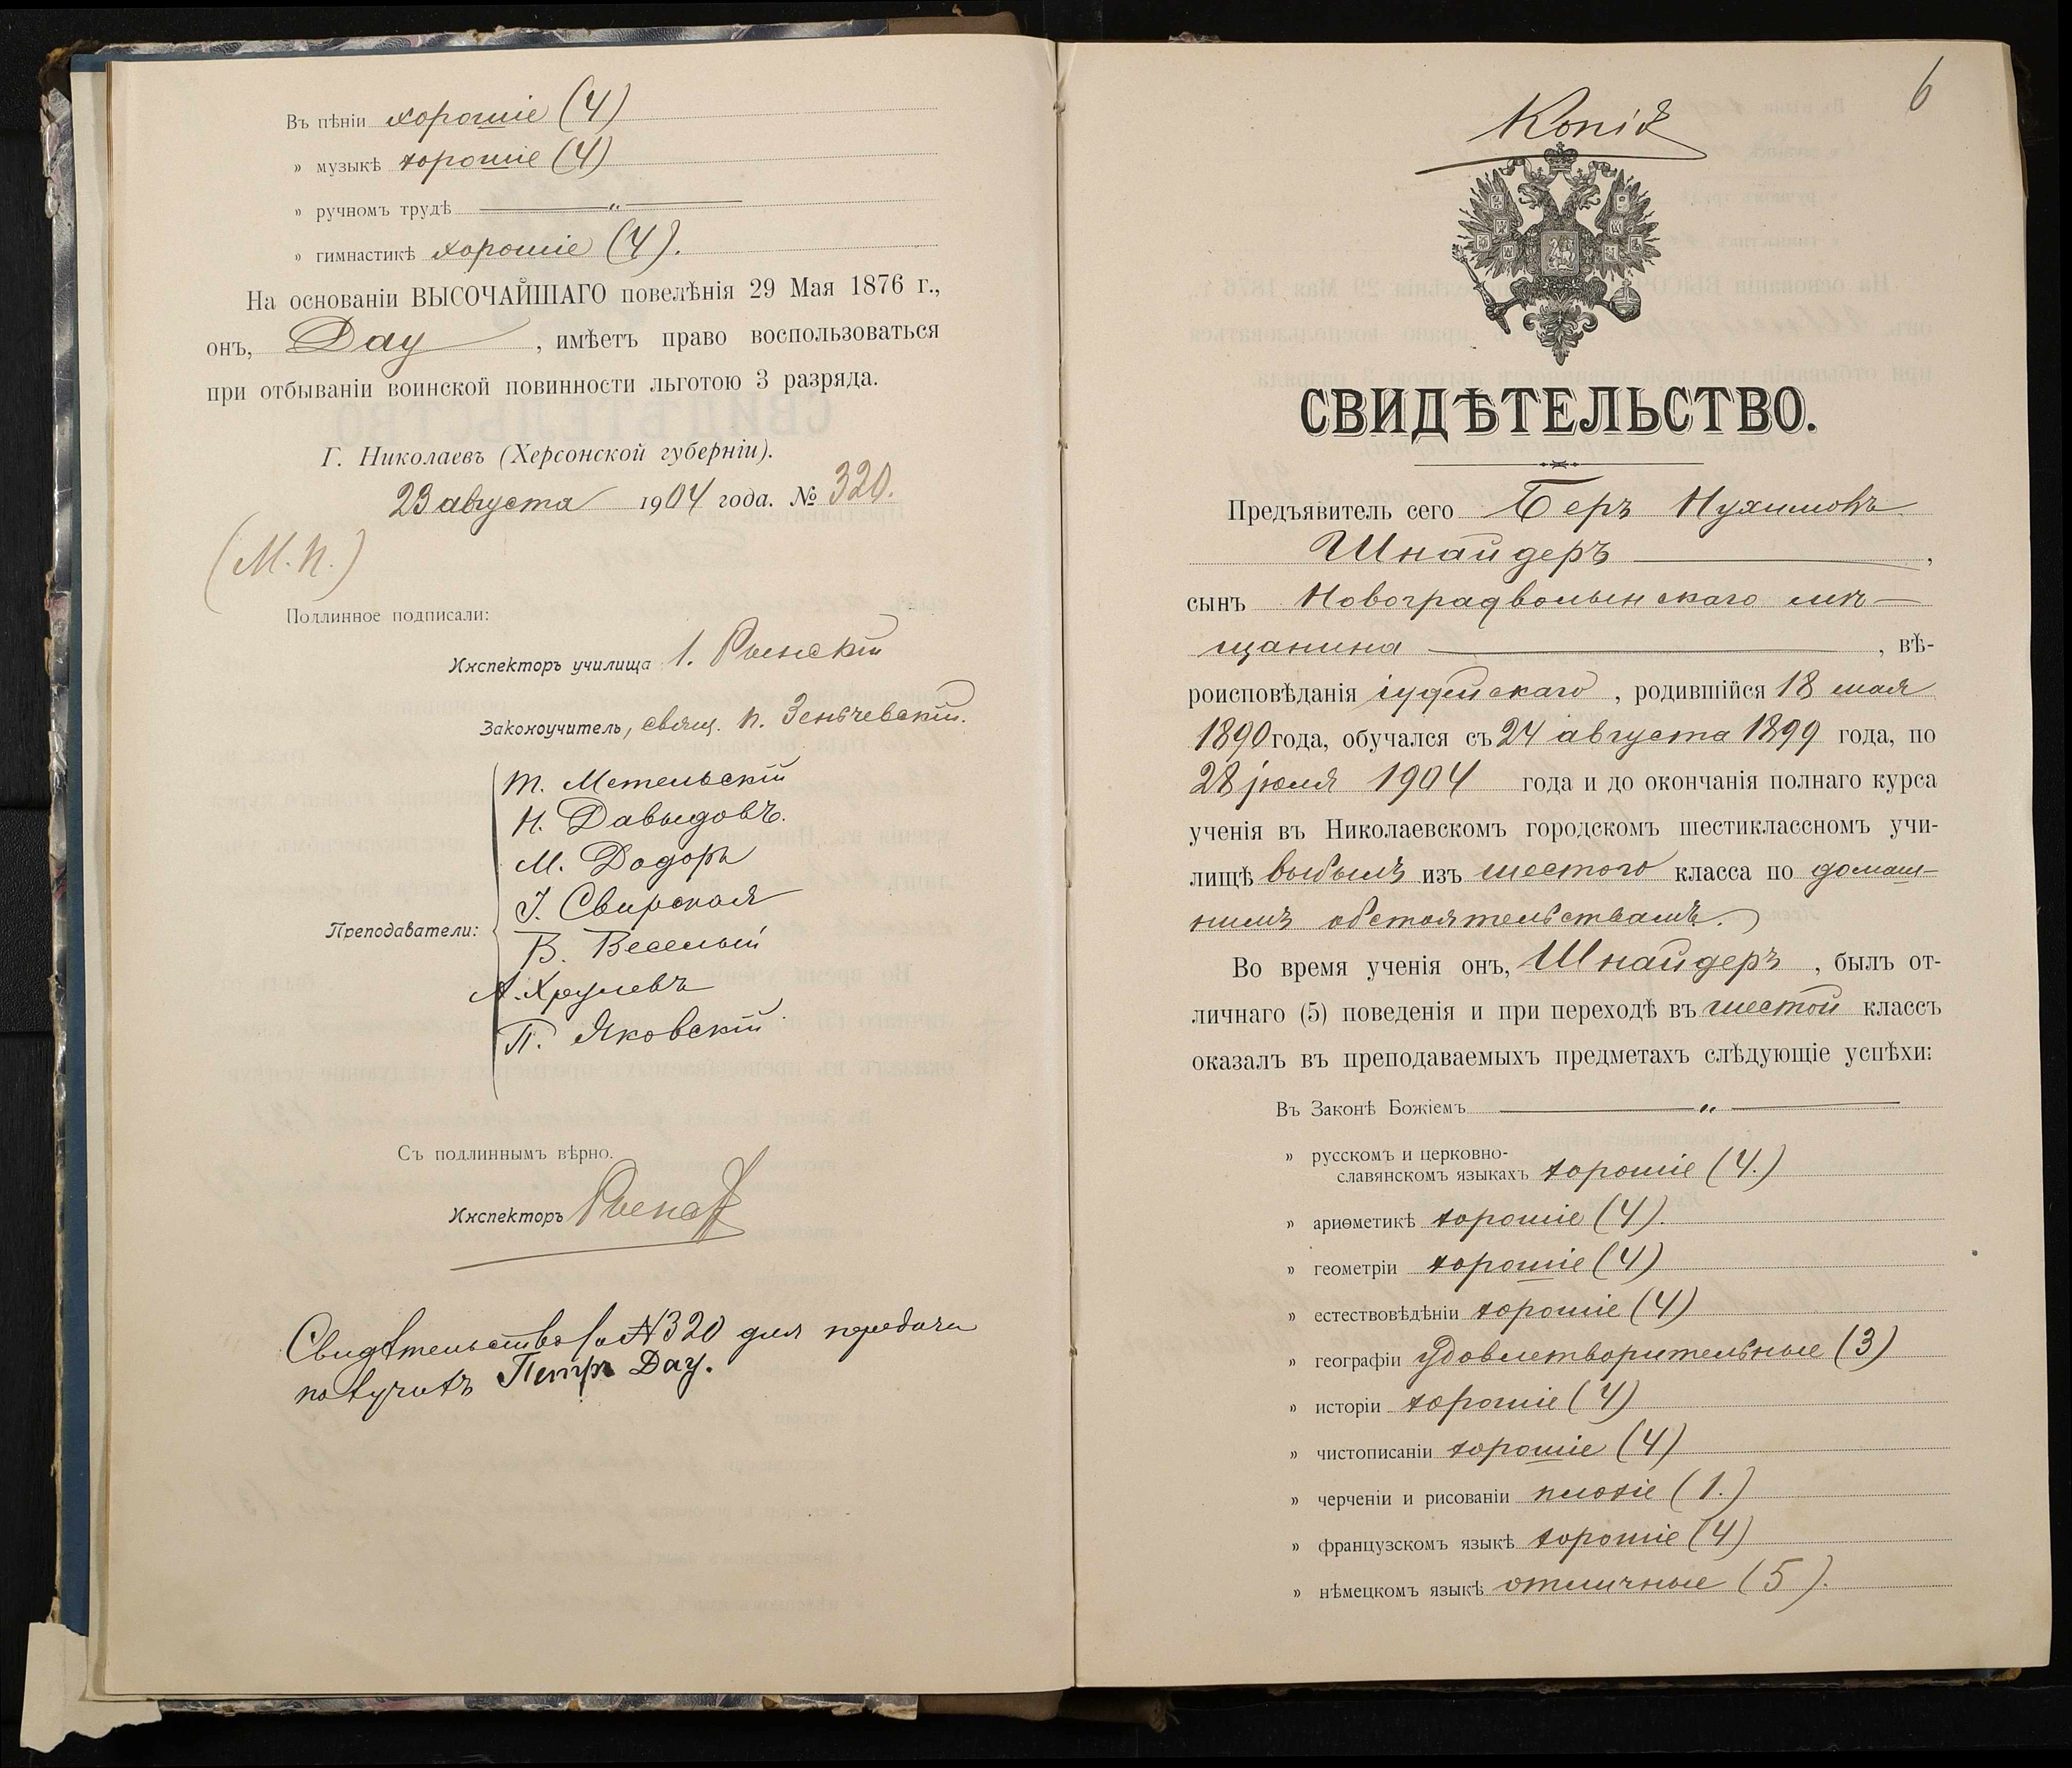 Въ пѣніи хорошіе (4)
» музыкѣ хорошіе (4)
» ручномъ трудѣ — „ —
» гимнастикѣ хорошіе (4).
На основаніи ВЫСОЧАЙШАГО повелѣнія 29 Мая 1876 г.,
онъ, Дау, имѣетъ право воспользоваться
при отбываніи воинской повинности льготою 3 разряда.
Г. Николаевъ (Херсонской губерніи).
23 августа 1904 года. № 320.
(М.П.)
Подлинное подписали:
Инспекторъ училища І.
Законоучитель, свящ. П. Зеньчевскій.
Преподаватели:
Т. Метельскій
Н. Давыдовъ.
М. Додоръ
І. Свирская
В. Веселый
А. Хрулевъ
П. Яковскій
Съ подлиннымъ вѣрно.
Инспекторъ
Свидѣтельство за №320 для передачи
получилъ Петръ Дау.
6
Копія
СВИДѢТЕЛЬСТВО.
Предъявитель сего Беръ Нухимовъ
Шнайдеръ — ,
сынъ Новоградволынскаго мѣ-
щанина — , вѣ-
роисповѣданія іудейскаго, родившійся 18 мая
1890 года, обучался съ 24 августа 1899 года, по
28 іюля 1904 года и до окончанія полнаго курса
ученія въ Николаевскомъ городскомъ шестиклассномъ учи-
лищѣ выбылъ изъ шестого класса по домаш-
нимъ обстоятельствамъ.
Во время ученія онъ, Шнайдеръ, былъ от-
личнаго (5) поведенія и при переходѣ въ шестой классъ
оказалъ въ преподаваемыхъ предметахъ слѣдующіе успѣхи:
Въ Законѣ Божіемъ — „ —
» русскомъ и церковно-
славянскомъ языкахъ хорошіе (4.)
» ариѳметикѣ хорошіе (4).
» геометріи хорошіе (4)
» естествовѣдѣніи хорошіе (4)
» географіи удовлетворительные (3)
» исторіи хорошіе (4)
» чистописаніи хорошіе (4)
» черченіи и рисованіи плохіе (1.)
» французскомъ языкѣ хорошіе (4)
» нѣмецкомъ языкѣ отличные (5).